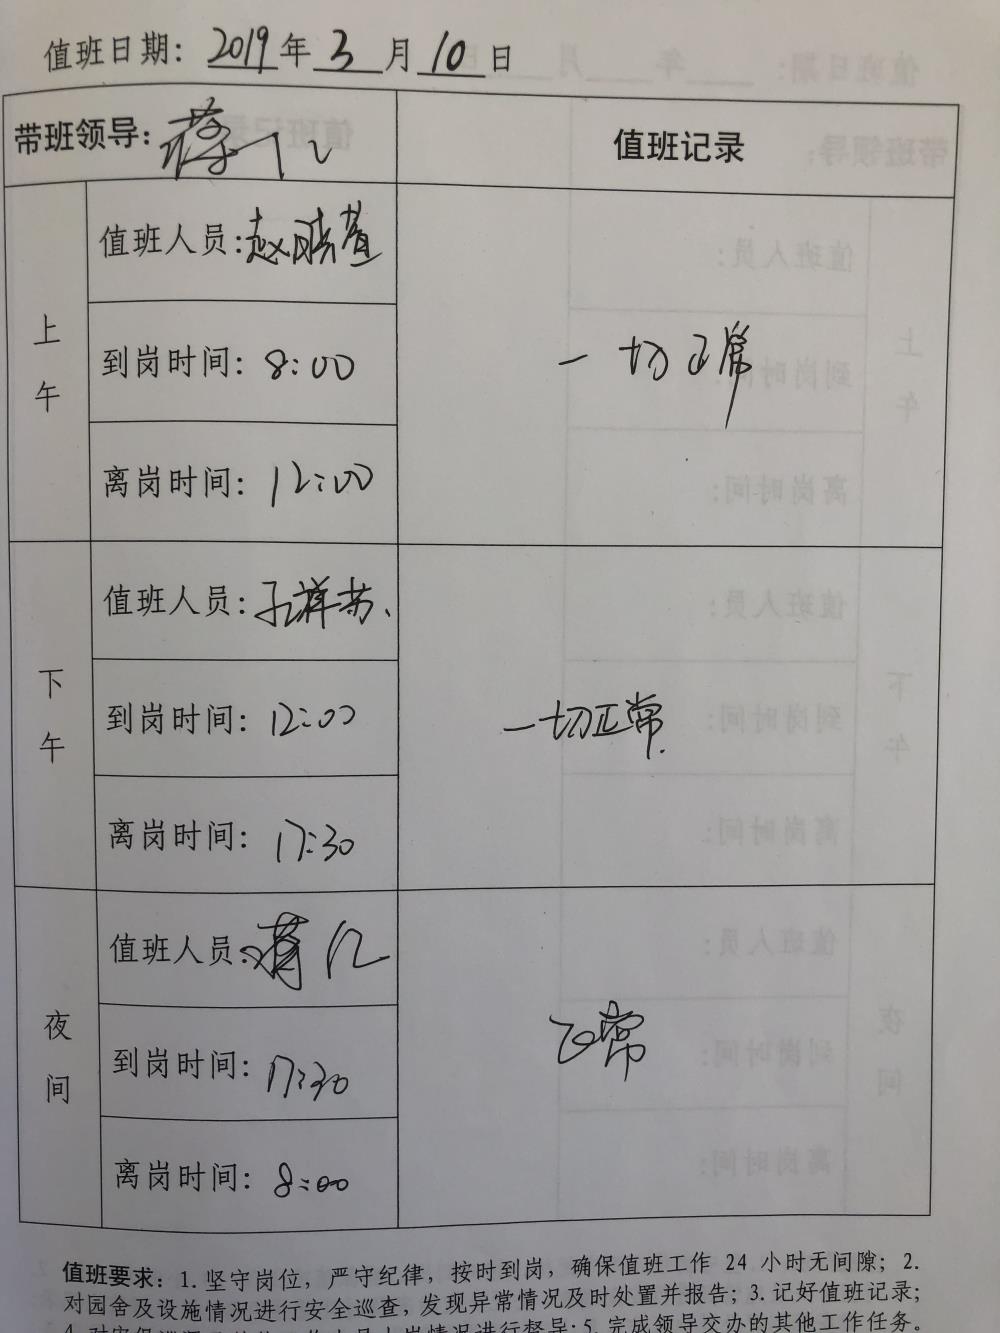 值班日期：2019年3月10日
带班领导：
值班记录
上午
值班人员：赵晓萱
到岗时间：8:00
离岗时间：12:00
一切正常
下午
值班人员：孔祥芳
到岗时间：12:00
离岗时间：17:30
一切正常.
夜间
值班人员：
到岗时间：17:30
离岗时间：8:00
正常
值班要求：1. 坚守岗位，严守纪律，按时到岗，确保值班工作 24 小时无间隙；2.
对园舍及设施情况进行安全巡查，发现异常情况及时处置并报告；3. 记好值班记录；
督导；5. 完成领导交办的其他工作任务。